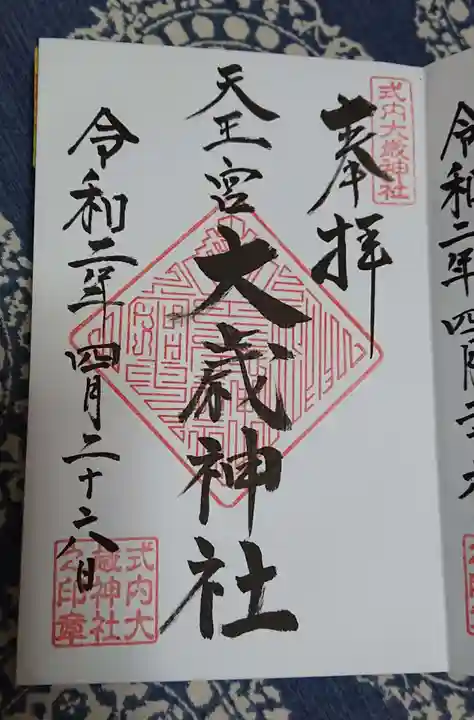 奉拝
式内大歳神社
天王宮
大歳神社
令和二年四月二十六日
式内大
歳神社
之印章
令和二年四月二十六